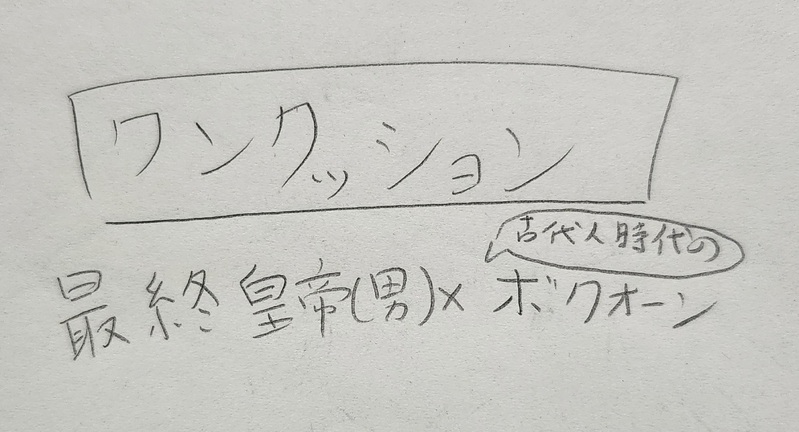 ワンクッション
古代人時代の
最終皇帝(男)×ボクオーン